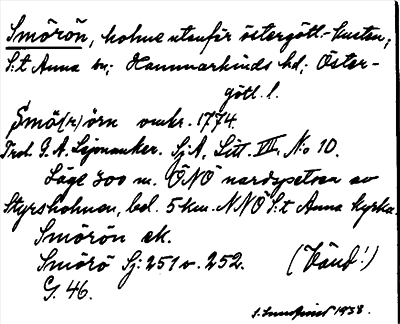 Smörön, holme utanför östergötl.-kusten;
S:t Anna sn; Hammarkinds hd; Öster-
götl. l.
Smö(r)örn omkr. 1774.
G. A. SjA, Litt. VII, N:o 10.
Läge 300 m. ÖNÖ nordspetsen av
Styrsholmen, bel. 5 km. NNÖ S:t Anna kyrka.
Smörön ek.
Smörö Sj: 251 o. 252. (Vänd!)
G. 46.
1938.